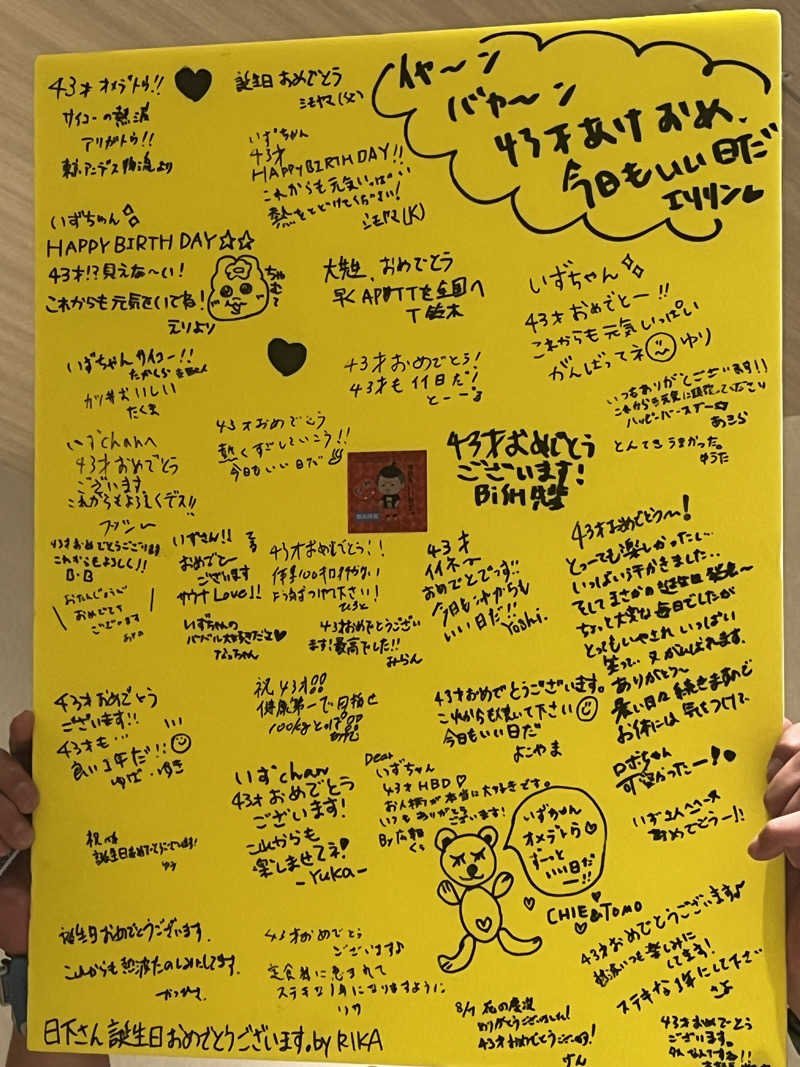 43才 オメデトウ!!
サイコーの熱波
アリガトウ!!
より
誕生日 おめでとう
シモヤマ(父)
いずちゃん
43才
HAPPY BIRTH DAY!!
これからも元気いっぱい
熱をとどけてください!
シモヤマ(K)
イヤ〜ン
バヤ〜ン
43才あけおめ、
今日もいい日だ
エリリン
いずちゃん
HAPPY BIRTH DAY☆☆
43才!?見えな〜い!
これからも元気でいてね!
えりより
大先生、おめでとう
早く を全国へ
T 鈴木
いずちゃん
43才 おめでとー!!
これからも元気いっぱい
がんばってネ ゆり
いずちゃんサイコー!!
ガツ丼おいしい
たくま
43才おめでとう!
43才も11日だ!
とーー
いつもありがとうございます!!
これからも元気に
ハッピーバースデー☆
あきら
とんてきうまかった。
ゆうた
いずchanへ
43才おめでとう
ございます
これからもよろしくデス!!
43才おめでとう
熱くすごしていこう!!
今日もいい日だ
43才おめでとう
ございます!
BiSH
43才おめでとうございます
これからもよろしく!!
B・B
おたんじょうび
おめでとう
ございます
いずさん!!
おめでとー
ございます
サウナ Love!!
いずちゃんの
大好きだよ♥
なっちゃん
43才おめでとう!!
体重100キロ
気をつけて下さい!
ひろと
43才おめでとうござい
ます!最高でした!!
みらん
43才
イイネー
おめでとでっす!!
今日も
いい日だ!!
Yoshi.
43才おめでとう〜!
とっても楽しかったし…
いっぱい汗かきました…
そしてまさかの誕生日
ちょっと大変な毎日でしたが
とってもいやされ いっぱい
笑って、又がんばれます。
ありがとう〜
暑い日々続きますので
お体には気をつけて、
ロボちゃん
可愛かったー!
43才おめでとう
ございます!!
43才も…
良い1年だ!!
ゆば ゆき
祝 43才
健康第一で目指せ
100kg
43才おめでとうございます。
これからも 下さい
今日もいい日だ
よこやま
いずさん
おめでとうー!!
祝
誕生日おめでとうございます!
いずchan
43才おめでとう
ございます!
これからも
楽しませてネ!
-YUKA-
Dear
いずちゃん
43才 HBD♡
お人柄が本当に大好きです。
いつもありがとう
ございます!
By
いずちゃん
オメデトウ♡
ずーっと
いい日だ
ー!!
CHIE&TOMO
誕生日おめでとうございます。
これからも熱波たのしみにしてます。
43才おめでとう
ございます♪
定食 に恵まれて
ステキな1年になりますように
リサ
43才おめでとうございます♪
いつも楽しみに
してます!
ステキな1年にして下さい
日下さん誕生日おめでとうございます。by RIKA
8/7
ありがとうございました!
43才おめでとうございます!
げん
43才おめでとう
ございます。